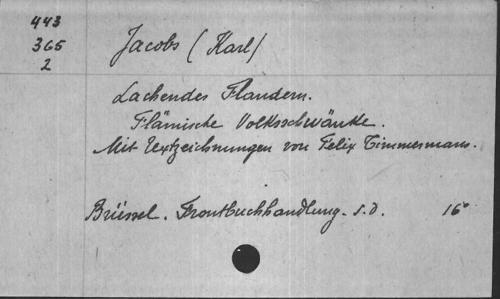 443
365
2
Jacobs (Karl)
Lachendes Flandern.
Flämische Volksschwänke.
Mit Textzeichnungen von Felix Timmermans.
Brüssel. Frontbuchhandlung. s.d. 16°